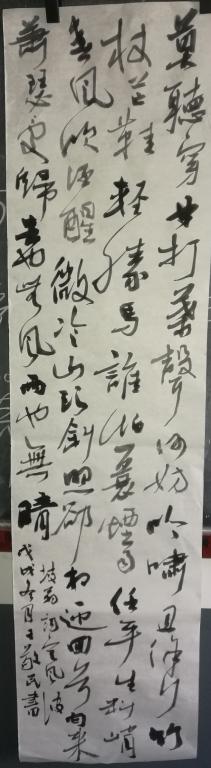 莫聽穿林打葉聲何妨吟嘯且徐行竹
杖芒鞋輕勝馬誰怕一蓑煙雨任平生料峭
春風吹酒醒微冷山頭斜照卻相迎回首向來
蕭瑟處歸去也無風雨也無晴
坡翁詞定風波
戊戌冬月敬民書